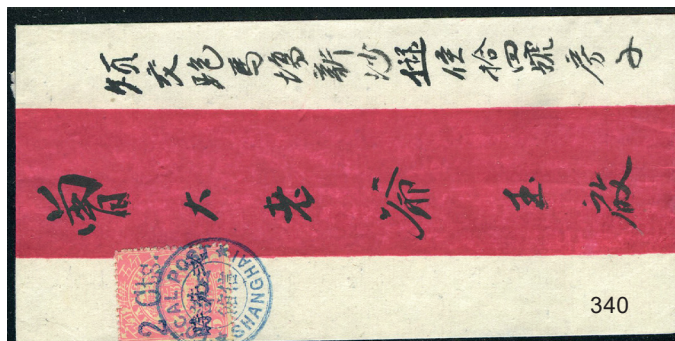 交跑馬場新沙住拾四號房子
大老爺玉啟
2 Cts.
LOCAL POST
SHANGHAI
340